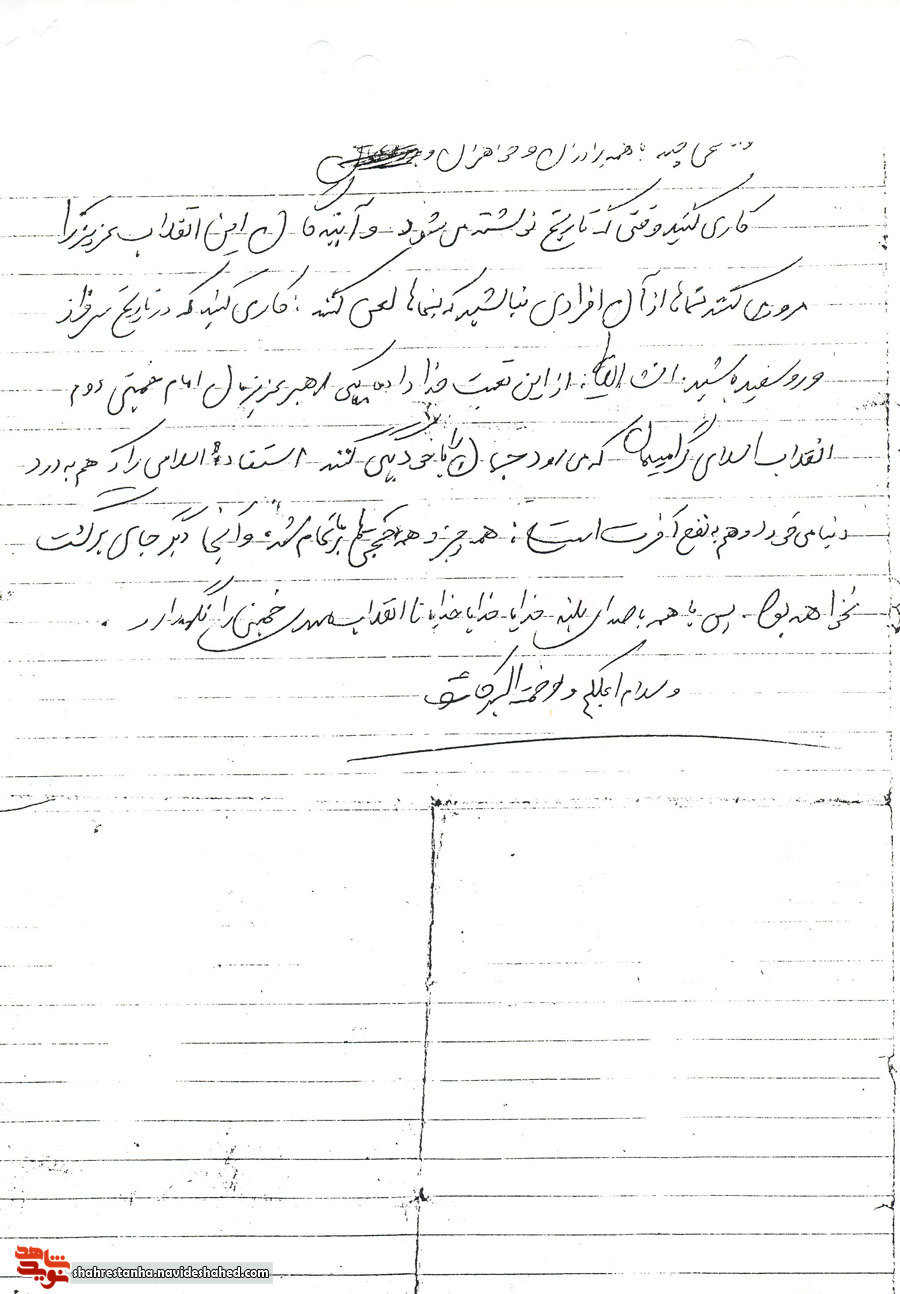 همه برادران و خواهران و
کاری کنید وقتی که تاریخ نوشته می شود و آیندگان این انقلاب عزیز را
مرور می کنند شماها از آن افرادی نباشید که بشماها لعن کنند : کاری کنید که در تاریخ سرفراز
و رو سفید باشید . انشاالله : از این نعمت خدا دادمان یکی رهبر عزیزمان امام خمینی دوم
انقلاب اسلامی گرامیمان که می رود جهان را با خود یکی کند استفاده اسلامی را که هم به درد
دنیا می خورد و هم به نفع آخرت است : همه چیز و همه تمام شد و آنجا دیگر جای برگشت
نخواهد بود . پس با همه با صدای بلند خدایا خدایا خدایا تا انقلاب مهدی خمینی را نگهدار .
و سلام علیکم
شاهد
نوید
shahrestanha.navideshahed.com